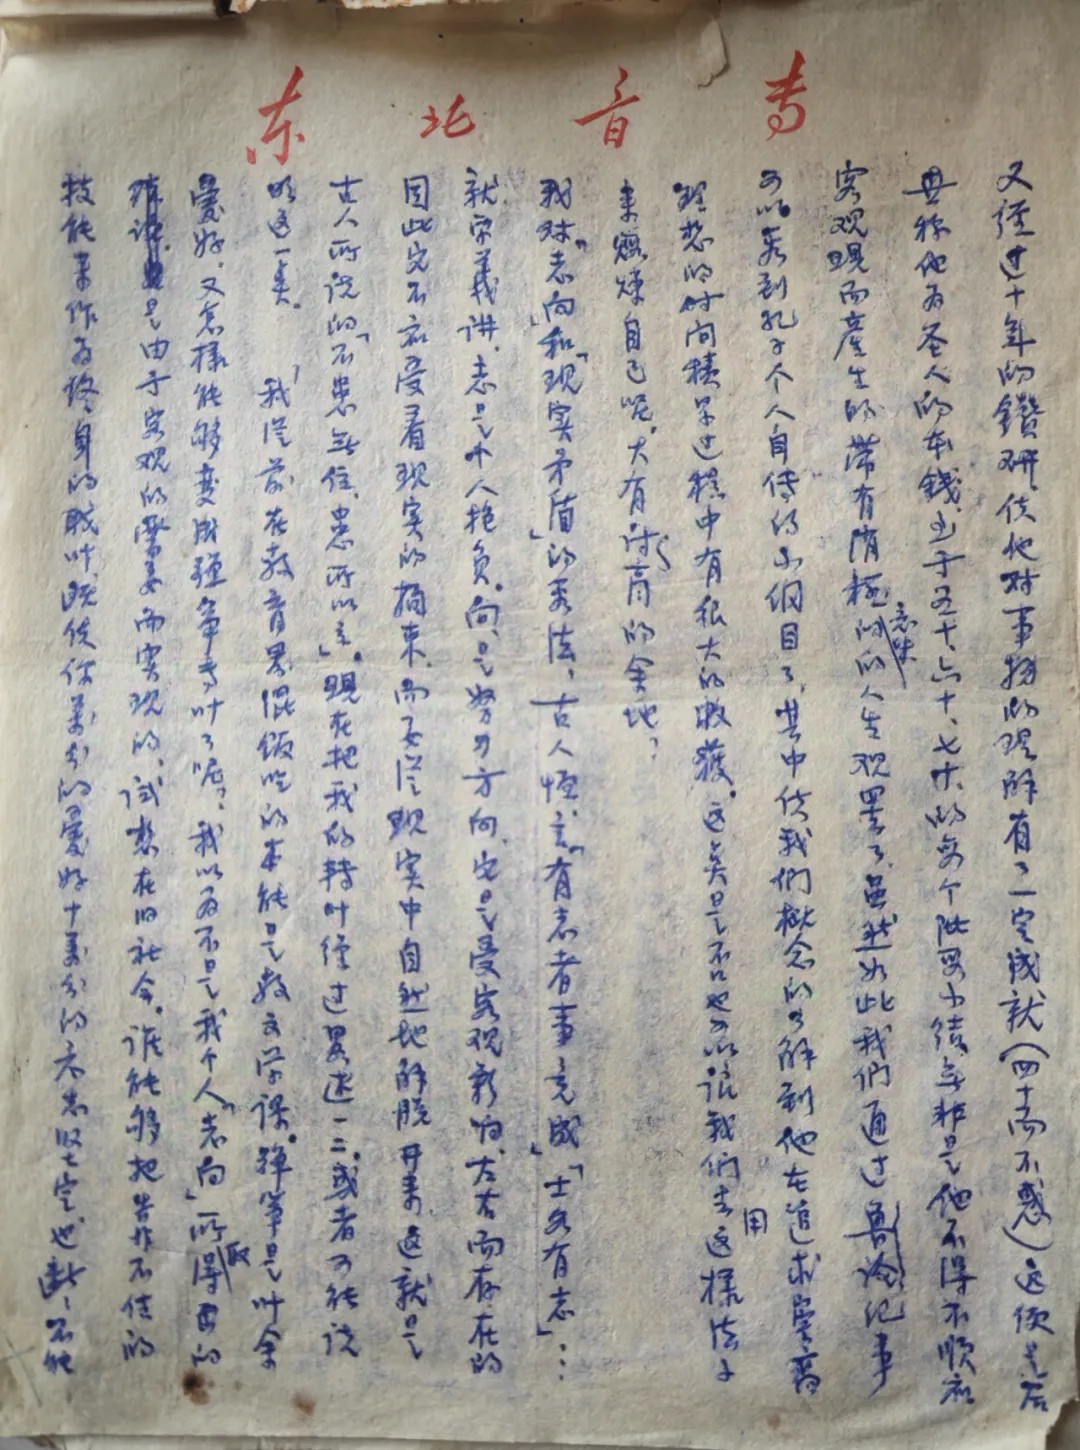 东北音专
又经过十年的鑽研，使他对事物的理解有了一定成就（四十而不惑）这便是后
世称他为圣人的本钱，至于五十、六十、七十的每个阶段小结无非是他不得不顺应
客观現实而產生的带有消極意味的人生观罢了，虽然如此我们通过魯论纪事
可以看到孔子个人自传的小纲目了，其中使我們概念的了解到他在追求实善
理想的时间積累过程中有很大的收獲。这实是否也可以说我们去用这樣法子
来磨煉自己呢，大有討商的余地？
我对「志向」和「現实矛盾」的看法，古人恒言「有志者事竟成」「士各有志」……
就字義讲，志是个人抱负。向是努力方向，它是受客观影响左右而存在的
因此它不应受着现实的拘束，而要从现实中自然地解脱开来，这就是
古人所说的「不患無位，患所以立」。現在把我的转叶经过累述一二，或者可能说
明这一类。 我从前在教育界混飯吃的本能是教文学课。弹筝是叶余
愛好，又怎樣能够变成弹筝专叶了呢？我以为不是我个人「志向」所取得的
是由于客观的需要而实现的，试想在旧社会。谁能够把告作不住的
技能来作为终身的职叶，既使你萬分的愛好十萬分的示志坚定也 不能